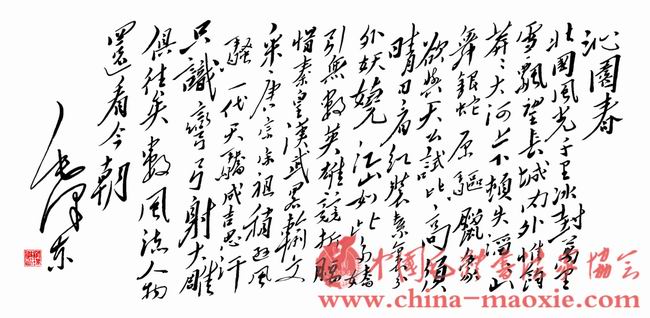 沁園春
北國風光千里冰封萬里
雪飄望長城內外惟餘
莽々大河上下頓失滔々山
舞銀蛇原驅臘象
欲與天公試比高須
晴日看紅裝素裹分
外妖嬈江山如此多嬌
引無數英雄競折腰
惜秦皇漢武略輸文
采唐宗宋祖稍遜風
騷一代天驕成吉思汗
只識彎弓射大雕
俱往矣數風流人物
還看今朝
毛澤東
www.china-maoxie.com